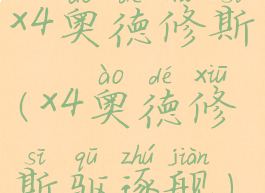 x4奥德修斯
ào dé xiū
(x4奥德修
sī qū zhú jiàn
斯驱逐舰)